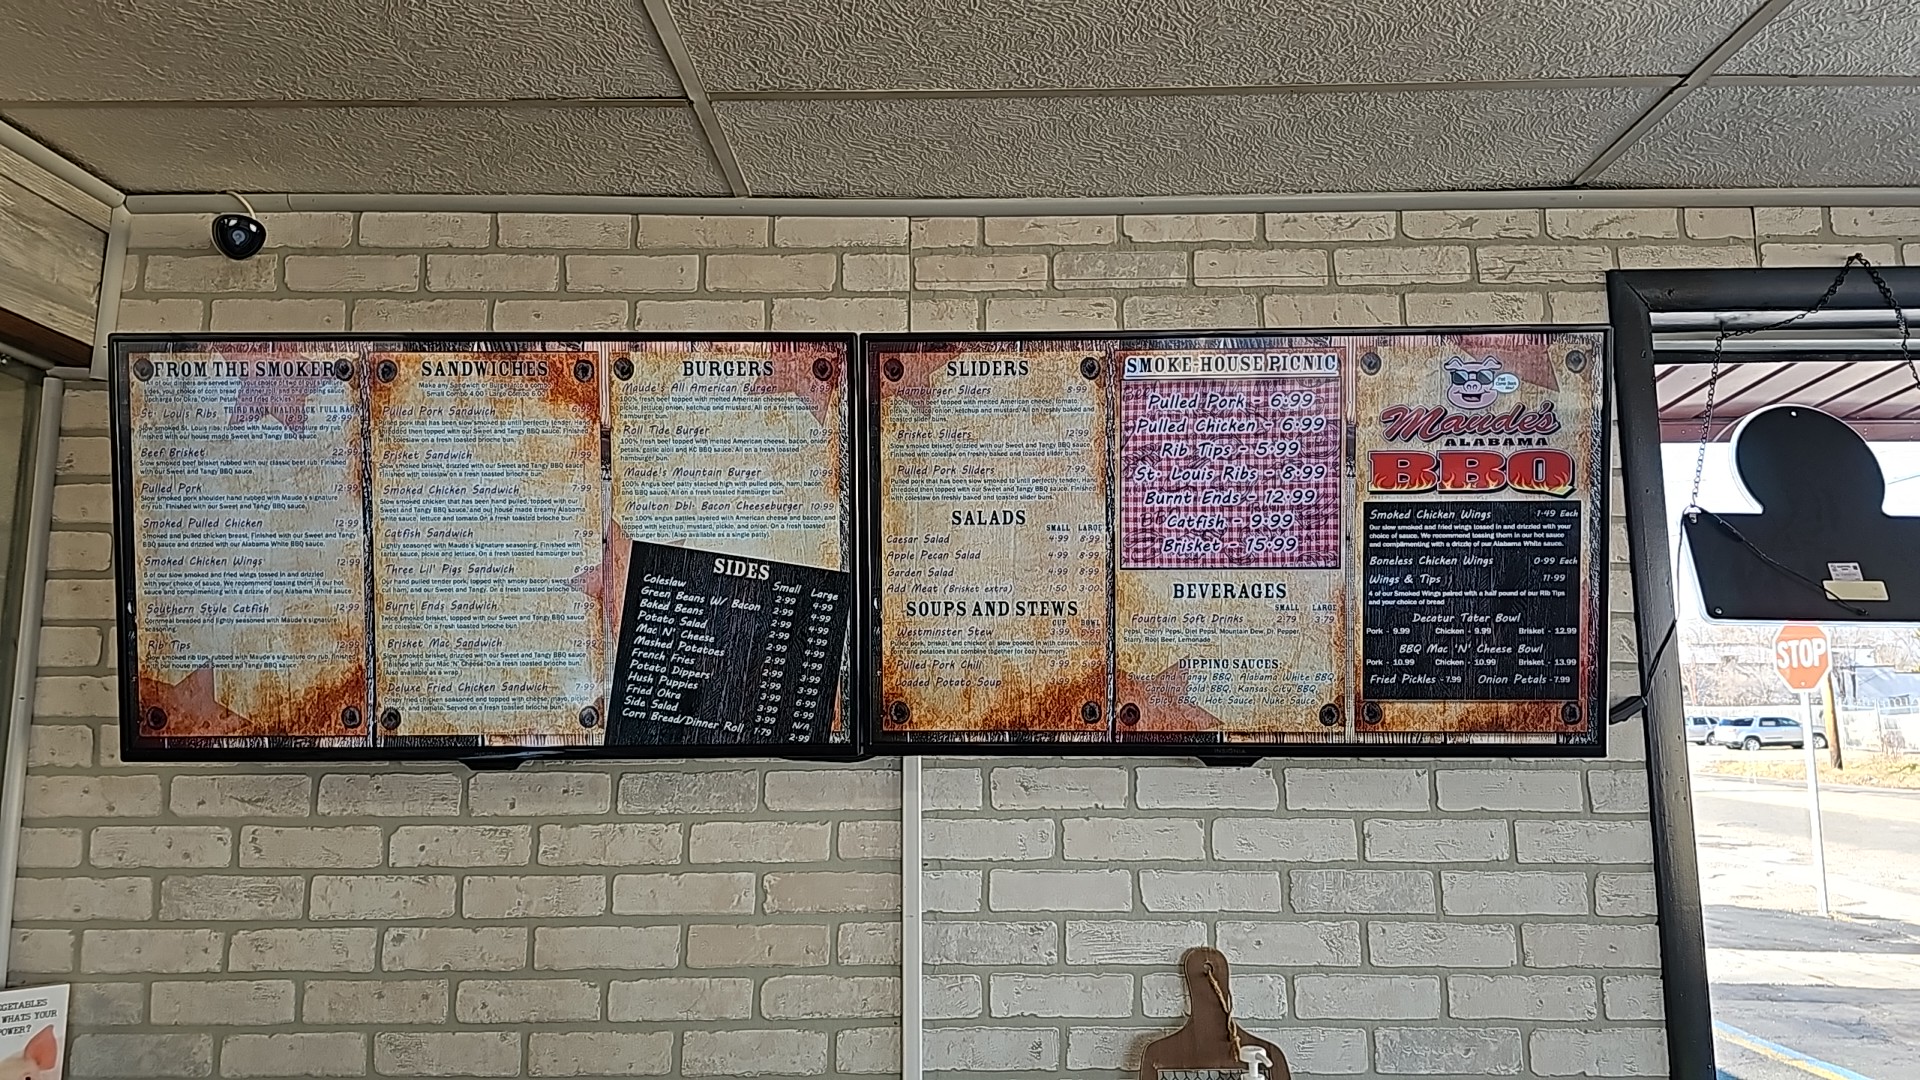 FROM THE SMOKER
All of our dinners are served with your choice of two of our signature
sides, your choice of corn bread or dinner roll and one dipping sauce
St. Louis Ribs THIRD RACK HALF RACK FULL RACK
12.99 18.99 28.99
Slow smoked St. Louis ribs, rubbed with Maude's signature dry rub,
finished with our house made Sweet and Tangy BBQ sauce.
Beef Brisket 22.99
Slow smoked beef brisket rubbed with our classic beef rub. Finished
with our Sweet and Tangy BBQ sauce.
Pulled Pork 12.99
Slow smoked pork shoulder hand rubbed with Maude's signature
dry rub. Finished with our Sweet and Tangy BBQ sauce.
Smoked Pulled Chicken 12.99
Smoked and pulled chicken breast, Finished with our Sweet and Tangy
BBQ sauce and drizzled with our Alabama White BBQ sauce.
Smoked Chicken Wings 12.99
6 of our slow smoked and fried wings tossed in and drizzled
with your choice of sauce. We recommend tossing them in our hot
sauce and complimenting with a drizzle of our Alabama White sauce.
Southern Style Catfish 12.99
Cornmeal breaded and lightly seasoned with Maude's signature
seasoning.
Rib Tips 12.99
Slow smoked rib tips, rubbed with Maude's signature dry rub, finished
with our house made Sweet and Tangy BBQ sauce.
SANDWICHES
Make any Sandwich or Burger into a combo
Small Combo 4.00 Large Combo 6.00
Pulled Pork Sandwich
Pulled pork that has been slow smoked to until perfectly tender. Hand
shredded then topped with our Sweet and Tangy BBQ sauce. Finished
with coleslaw on a fresh toasted brioche bun.
Brisket Sandwich 11.99
Slow smoked brisket, drizzled with our Sweet and Tangy BBQ sauce
finished with coleslaw on a fresh toasted brioche bun.
Smoked Chicken Sandwich 7.99
Smoked chicken that has been hand pulled, topped with our
Sweet and Tangy BBQ sauce, and our house made creamy Alabama
White sauce, lettuce and tomato. On a fresh toasted brioche bun.
Catfish Sandwich 7.99
Lightly seasoned with Maude's signature seasoning. Finished with
tartar sauce, pickle and lettuce. On a fresh toasted hamburger bun
Three Lil' Pigs Sandwich 8.99
Our hand pulled tender pork, topped with smoky bacon, sweet
and our Sweet and Tangy. On a fresh toasted brioche bun.
Burnt Ends Sandwich 11.99
Twice smoked brisket, topped with our Sweet and Tangy BBQ sauce
and coleslaw. On a fresh toasted brioche bun.
Brisket Mac Sandwich 12.99
Slow smoked brisket, drizzled with our Sweet and Tangy BBQ sauce
Finished with our Mac 'N' Cheese. On a fresh toasted brioche bun.
(Also available as a wrap.)
Deluxe Fried Chicken Sandwich 7.99
Crispy fried chicken seasoned and topped with cheese, mayo, pickle,
lettuce, and tomato. Served on a fresh toasted brioche bun.
BURGERS
Maude's All American Burger 8.99
100% fresh beef topped with melted American cheese, tomato,
pickle, lettuce, onion, ketchup and mustard. All on a fresh toasted
hamburger bun.
Roll Tide Burger 10.99
100% fresh beef topped with melted American cheese, bacon, onion
petals, garlic aioli and KC BBQ sauce. All on a fresh toasted
hamburger bun.
Maude's Mountain Burger 10.99
100% Angus beef patty stacked high with pulled pork, ham, bacon
and BBQ sauce. All on a fresh toasted hamburger bun.
Moulton Dbl. Bacon Cheeseburger 10.99
Two 100% angus patties layered with American cheese and bacon, and
topped with ketchup, mustard, pickle, and onion. On a fresh toasted
hamburger bun. (Also available as a single patty).
SIDES
Small Large
Coleslaw 2.99 4.99
Green Beans W/ Bacon 2.99 4.99
Baked Beans 2.99 4.99
Potato Salad 2.99 4.99
Mac N' Cheese 2.99 4.99
Mashed Potatoes 2.99 4.99
French Fries 2.99 3.99
Potato Dippers 2.99 3.99
Hush Puppies 2.99 3.99
Fried Okra 3.99 6.99
Side Salad 3.99 N/A
Corn Bread/Dinner Roll 1.79 2.99
SLIDERS
Hamburger Sliders 8.99
100% fresh beef topped with melted American cheese, tomato,
pickle, lettuce, onion, ketchup and mustard. All on freshly baked and
toasted hamburger buns.
Brisket Sliders 12.99
Slow smoked brisket, drizzled with our Sweet and Tangy BBQ sauce.
Finished with coleslaw on freshly baked and toasted slider buns.
Pulled Pork Sliders 7.99
Pulled pork that has been slow smoked to until perfectly tender. Hand
shredded then topped with our Sweet and Tangy BBQ sauce. Finished
with coleslaw on freshly baked and toasted slider buns.
SALADS
SMALL LARGE
Caesar Salad 4.99 8.99
Apple Pecan Salad 4.99 8.99
Garden Salad 4.99 8.99
Add Meat (Brisket extra) 1.50 3.00
SOUPS AND STEWS
CUP BOWL
Westminster Stew 3.99
Pork, brisket, and chicken all slow cooked in with carrots,
and potatoes that combine together for cozy harmony.
Pulled Pork Chili 3.99
Loaded Potato Soup
SMOKE-HOUSE PICNIC
Pulled Pork - 6.99
Pulled Chicken - 6.99
Rib Tips - 5.99
St. Louis Ribs - 8.99
Burnt Ends - 12.99
Catfish - 9.99
Brisket - 15.99
BEVERAGES
SMALL LARGE
Fountain Soft Drinks 2.79 3.79
Pepsi, Cherry Pepsi, Diet Pepsi, Mountain Dew, Dr. Pepper,
Starry, Root Beer, Lemonade
DIPPING SAUCES:
Sweet and Tangy BBQ, Alabama White BBQ,
Carolina Gold BBQ, Kansas City BBQ,
Spicy BBQ, Hot Sauce, Nuke Sauce
Maude's
ALABAMA
BBQ
Smoked Chicken Wings 1.49 Each
Our slow smoked and fried wings tossed in and drizzled with your
choice of sauce. We recommend tossing them in our hot sauce
and complimenting with a drizzle of our Alabama White sauce.
Boneless Chicken Wings 0.99 Each
Wings & Tips 11.99
4 of our Smoked Wings paired with a half pound of our Rib Tips
and your choice of bread
Decatur Tater Bowl
Pork - 9.99 Chicken - 9.99 Brisket - 12.99
BBQ Mac 'N' Cheese Bowl
Pork - 10.99 Chicken - 10.99 Brisket - 13.99
Fried Pickles - 7.99 Onion Petals - 7.99
INSIGNIA
STOP
EGETABLES
WHATS YOUR
POWER?